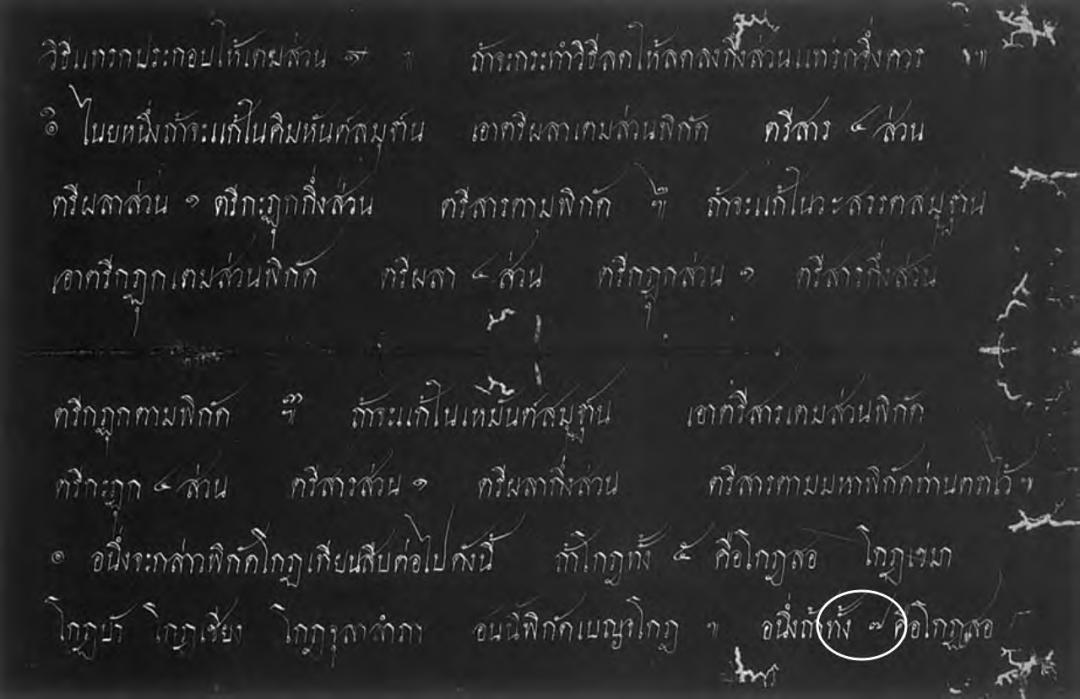 วิธีแทรกประกอบให้เตมส่วน ๚ ถ้าจะกระทำวิธีลดให้ลดลงกึ่งส่วนแทรกจึ่งควร ๚
๏ ไนยหนึ่งถ้าจะแก้ในคิมหันต์สมุฏฐาน เอาตรีผลาเตมส่วนพิกัด ตรีสาร ๔ ส่วน
ตรีผลาส่วน ๑ ตรีกะฏุกกึ่งส่วน ตรีสารตามพิกัด ๚ ถ้าจะแก้ในวะสรรตสมุฏฐาน
เอาตรีกฏุกเตมส่วนพิกัด ตรีผลา ๔ ส่วน ตรีกฏุกส่วน ๑ ตรีสารกึ่งส่วน
ตรีกฏุกตามพิกัด ๚ ถ้าจะแก้ในเหมันต์สมุฏฐาน เอาตรีสารเตมส่วนพิกัด
ตรีกะฏุก ๔ ส่วน ตรีสารส่วน ๑ ตรีผลากึ่งส่วน ตรีสารตามมหาพิกัดท่านตราไว้ ฯ
๏ อนึ่งจะกล่าวพิกัดโกฏเทียนสืบต่อไปดังนี้ ถ้าโกฏทั้ง ๕ คือโกฏสอ โกฏเขมา
โกฏบัว โกฏเชียง โกฏจุลาลำภา อนนี้พิกัดเบญจโกฏ ฯ อนึ่งถ้าทั้ง ๗ คือโกฏสอ